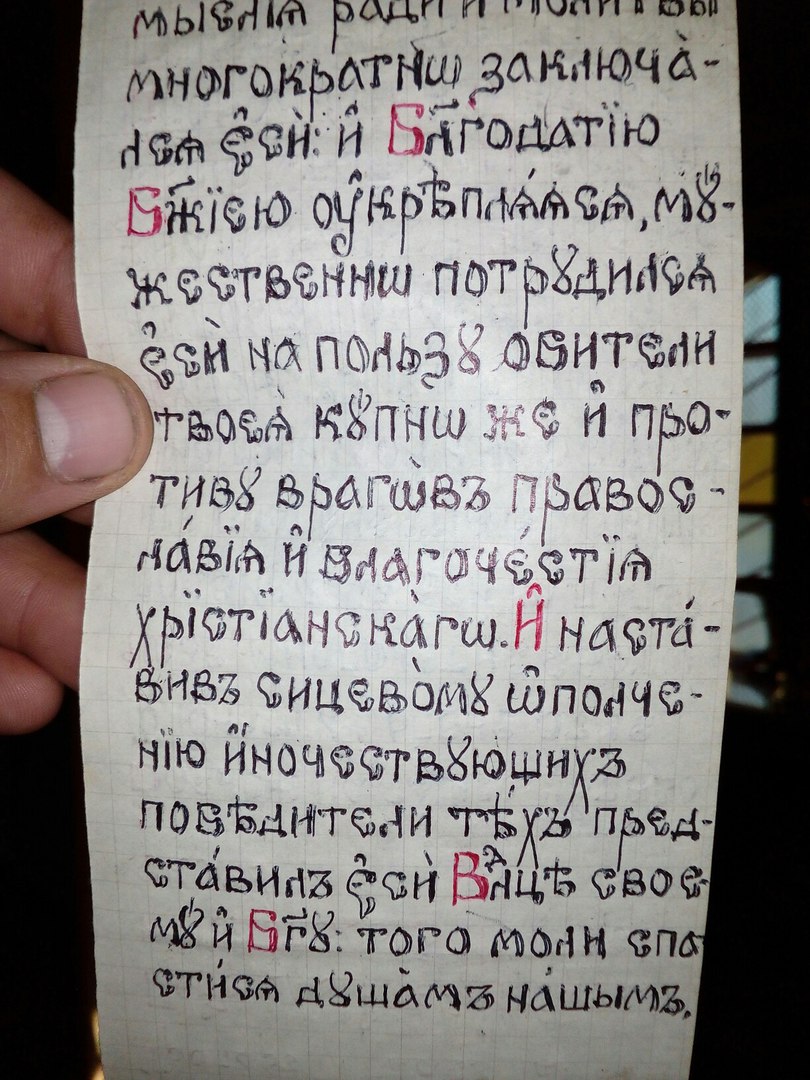 мы́слїѧ ради и҆ молитвы
многокра́тнѡ заключа̀-
лсѧ є҆сѝ: и҆ Бл҃года́тїю
Бж҃їею оу҆крѣплѧ́ѧсѧ, мꙋ́-
жественнѡ потрꙋдилсѧ
є҆сѝ на пользꙋ обители
твоеѧ̀ кꙋ́пнѡ же и҆ про-
тивꙋ врагѡ̀въ правос-
ла́вїѧ и҆ благоче́стїѧ
хрїстїанска̀гѡ. И҆ наста́-
вивъ сицево̀мꙋ ѡ҆полче-
нїю и҆́ночествꙋющихъ
побѣдители тѣ́хъ пред-
ста́вилъ є҆сѝ Влⷣцѣ свое-
мꙋ́ и҆ Бг҃ꙋ: того моли спа
сти́сѧ дꙋша̀мъ на́шымъ.